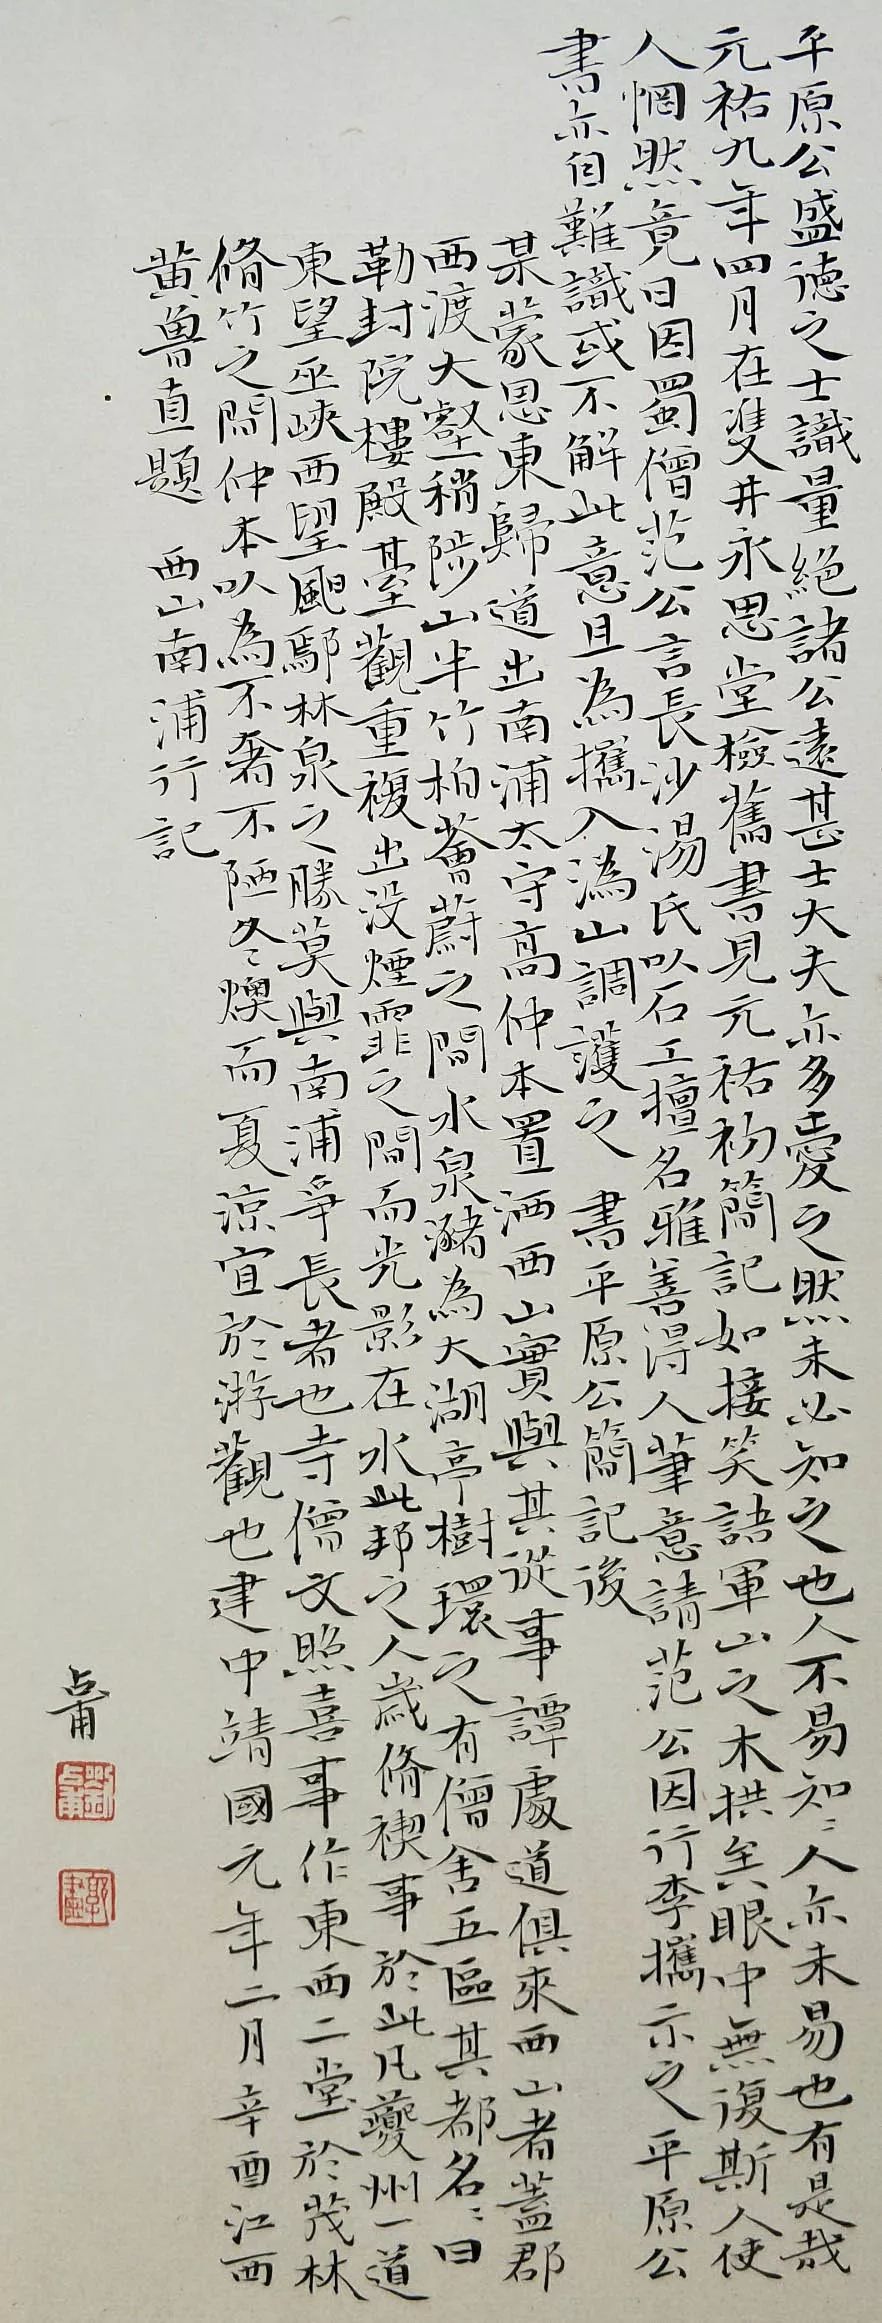 平原公盛德之士識量絕諸公遠甚士大夫亦多愛之然未必知之也人不易知〻人亦未易也有是哉
元祐九年四月在雙井永思堂檢舊書見元祐初簡記如接笑語軍山之木拱矣眼中無復斯人使
人惘然竟日因蜀僧范公言長沙湯氏以石工擅名雅善得人筆意請范公因行李攜示之平原公
書亦自難識或不解此意且為攜入溈山調護之 書平原公簡記後
某蒙恩東歸道出南浦太守高仲本置洒西山實與其從事譚處道俱來西山者蓋郡
西渡大壑稍陟山半竹柏薈蔚之間水泉瀦為大湖亭樹環之有僧舍五區其都名〻曰
勒封院樓殿臺觀重複出沒煙霏之間而光影在水此邦之人歲脩禊事於此凡夔州一道
東望巫峽西望郾林泉之勝莫與南浦爭長者也寺僧文照喜事作東西二堂於茂林
脩竹之間仲本以為不奢不陋冬燠而夏涼宜於游觀也建中靖國元年二月辛酉江西
黃魯直題 西山南浦行記